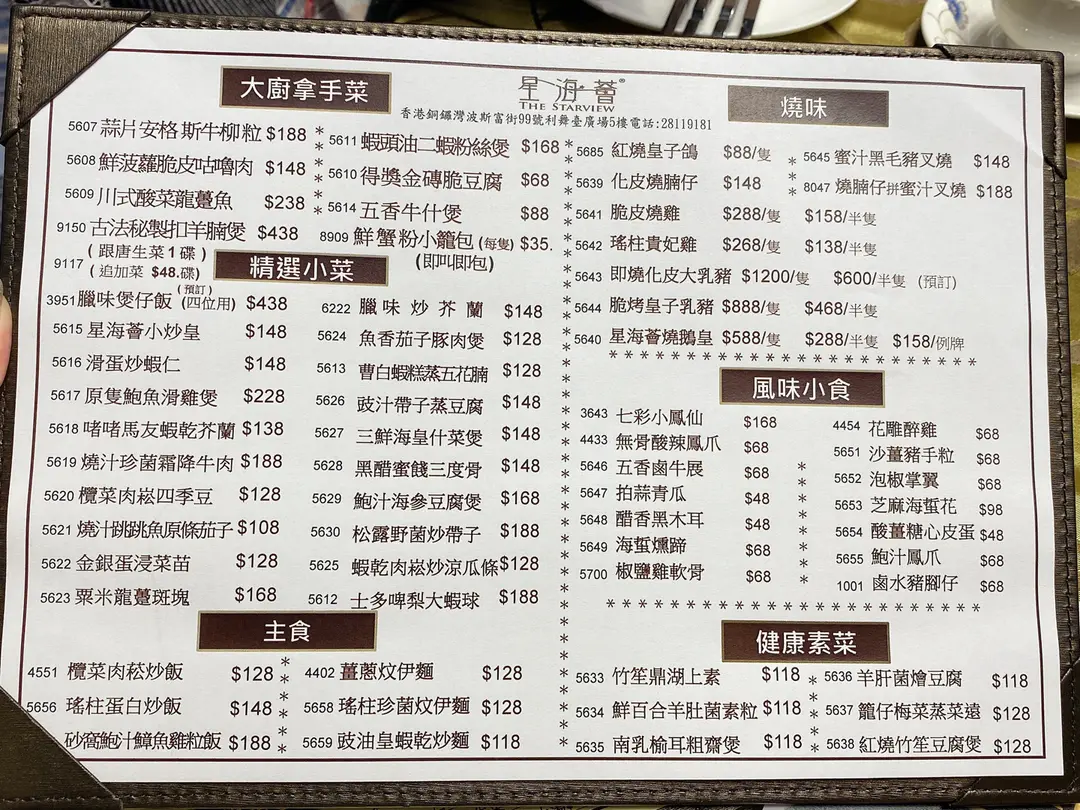 星海薈®
THE STARVIEW
香港銅鑼灣波斯富街99號利舞臺廣場5樓電話:28119181
大廚拿手菜
5607 蒜片安格斯牛柳粒 $188
5608 鮮波蘿脆皮咕嚕肉 $148
5609 川式酸菜龍躉魚 $238
9150 古法秘製扣羊腩煲 $438
9117 (跟唐生菜1碟)
(追加菜 $48.碟)
5611 蝦頭油二蝦粉絲煲 $168
5610 得獎金磚脆豆腐 $68
5614 五香牛什煲 $88
8909 鮮蟹粉小籠包 (每隻) $35.
(即叫即包)
精選小菜
(預訂)
3951 臘味煲仔飯 (四位用) $438
5615 星海薈小炒皇 $148
5616 滑蛋炒蝦仁 $148
5617 原隻鮑魚滑雞煲 $228
5618 啫啫馬友蝦乾芥蘭 $138
5619 燒汁珍菌霜降牛肉 $188
5620 欖菜肉崧四季豆 $128
5621 燒汁跳跳魚原條茄子 $108
5622 金銀蛋浸菜苗 $128
5623 粟米龍躉斑塊 $168
6222 臘味炒芥蘭 $148
5624 魚香茄子豚肉煲 $128
5613 曹白蝦糕蒸五花腩 $128
5626 豉汁帶子蒸豆腐 $148
5627 三鮮海皇什菜煲 $148
5628 黑醋蜜餞三度骨 $148
5629 鮑汁海參豆腐煲 $168
5630 松露野菌炒帶子 $188
5625 蝦乾肉崧炒涼瓜條 $128
5612 士多啤梨大蝦球 $188
主食
4551 欖菜肉崧炒飯 $128
5656 瑤柱蛋白炒飯 $148
砂窩鮑汁鱆魚雞粒飯 $188
4402 薑蔥炆伊麵 $128
5658 瑤柱珍菌炆伊麵 $128
5659 豉油皇蝦乾炒麵 $118
燒味
5685 紅燒皇子鴿 $88/隻
5639 化皮燒腩仔 $148
5641 脆皮燒雞 $288/隻 $158/半隻
5642 瑤柱貴妃雞 $268/隻 $138/半隻
5643 即燒化皮大乳豬 $1200/隻 $600/半隻 (預訂)
5644 脆烤皇子乳豬 $888/隻 $468/半隻
5640 星海薈燒鵝皇 $588/隻 $288/半隻 $158/例牌
5645 蜜汁黑毛豬叉燒 $148
8047 燒腩仔拼蜜汁叉燒 $188
風味小食
3643 七彩小鳳仙 $168
4433 無骨酸辣鳳爪 $68
5646 五香鹵牛展 $68
5647 拍蒜青瓜 $48
5648 醋香黑木耳 $48
5649 海蜇燻蹄 $68
5700 椒鹽雞軟骨 $68
4454 花雕醉雞 $68
5651 沙薑豬手粒 $68
5652 泡椒掌翼 $68
5653 芝麻海蜇花 $98
5654 酸薑糖心皮蛋 $48
5655 鮑汁鳳爪 $68
1001 鹵水豬腳仔 $68
健康素菜
5633 竹笙鼎湖上素 $118
5634 鮮百合羊肚菌素粒 $118
5635 南乳榆耳粗齋煲 $118
5636 羊肝菌燴豆腐 $118
5637 籠仔梅菜蒸菜遠 $128
5638 紅燒竹笙豆腐煲 $128